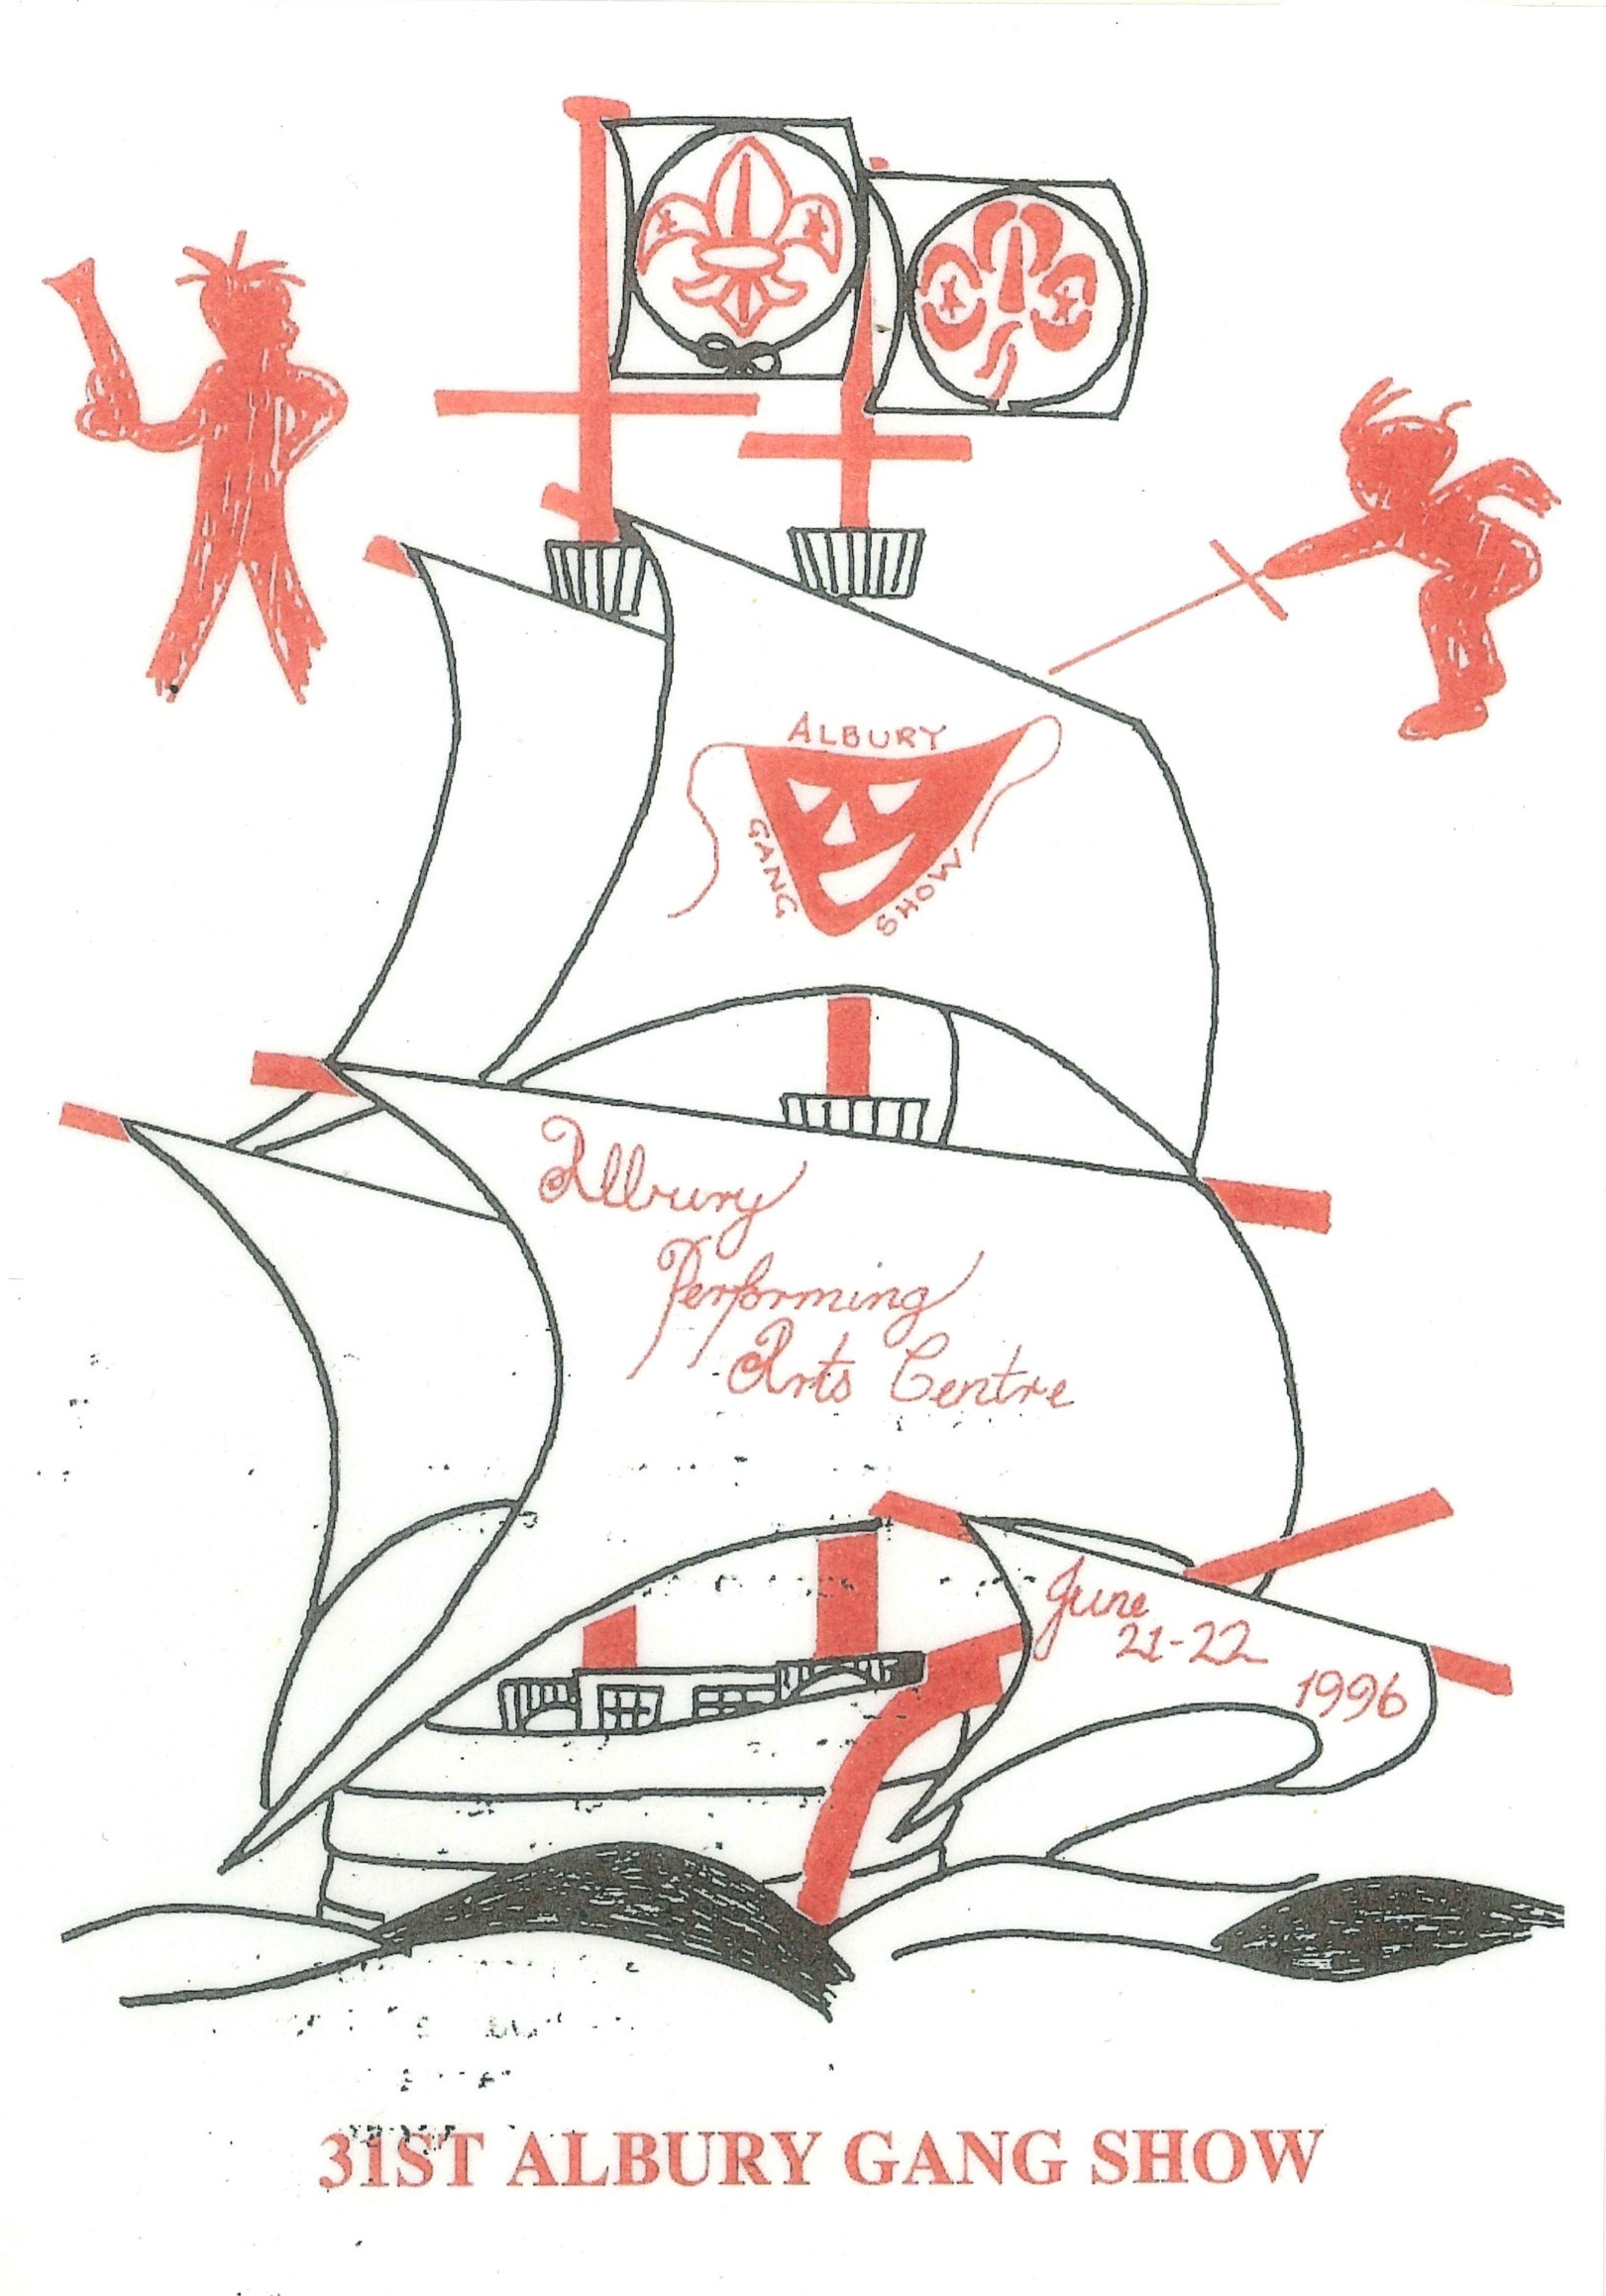 ALBURY
GANG SHOW
Albury
Performing
Arts Centre
June
21-22
1996
31ST ALBURY GANG SHOW